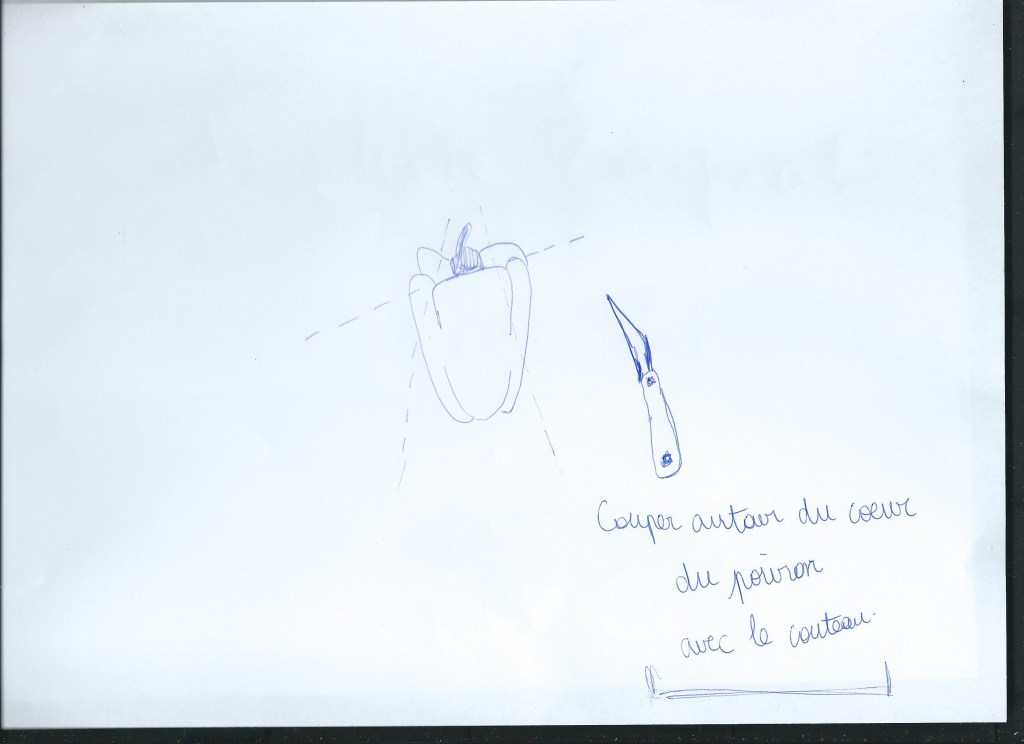 Couper autour du coeur
du poivron
avec le couteau.